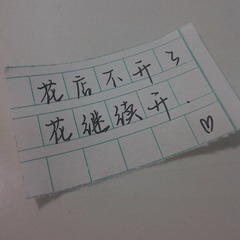 花店不开了
花继续开.♡